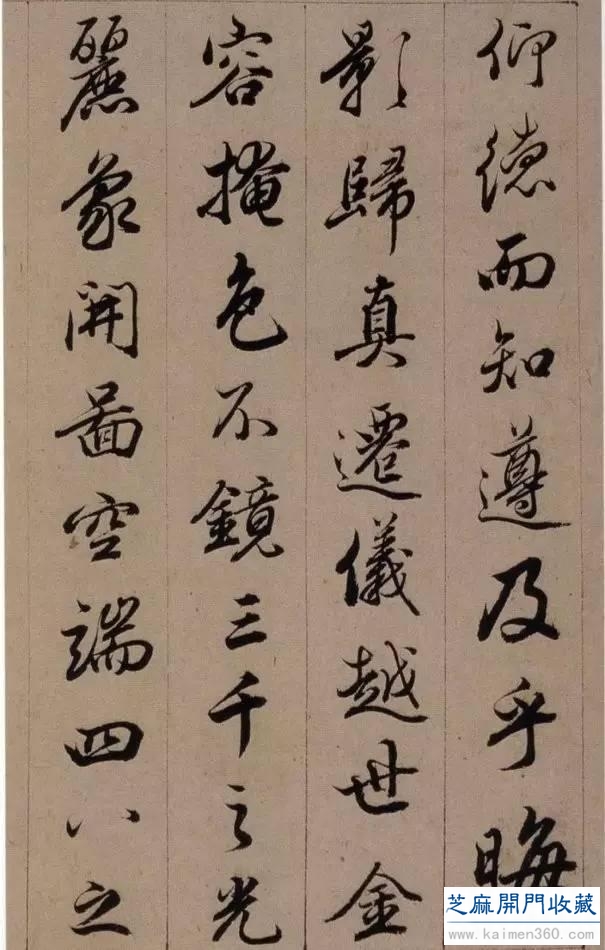 仰德而知遵及乎晦
影歸真遷儀越世金
容掩色不鏡三千之光
麗象開圖空端四八之
芝麻開門收藏
www.kaimen360.com